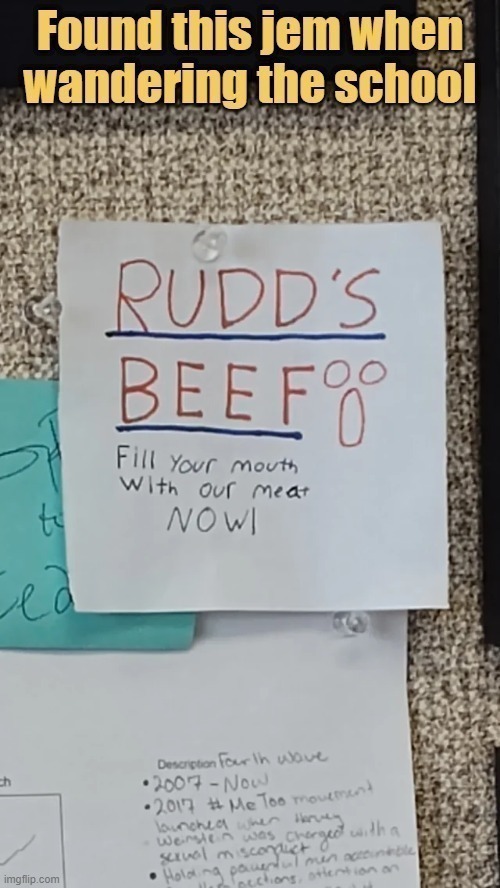 Found this jem when
wandering the school
RUDD'S
BEEF
Fill your mouth
with our meat
NOW!
to
Description Fourth wave
• 2007 - Now
• 2017 # MeToo movement
launched when Harvey
Weinstein was charged with a
sexual misconduct
• Holding powerful men accountable
actions, attention on
imgflip.com